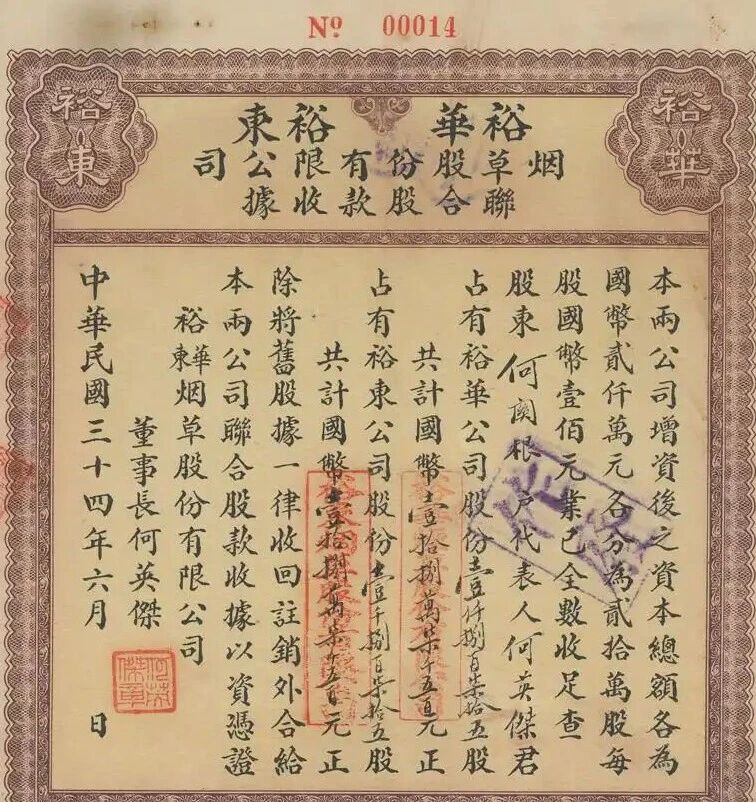 Nº 00014
裕華 裕東
烟草股份有限公司
聯合股款收據
裕華
裕東
本兩公司增資後之資本總額各為
國幣貳仟萬元各分為貳拾萬股每
股國幣壹佰元業已全數收足查
股東何関根戶代表人何英傑君
占有裕華公司股份壹仟捌百柒拾五股
共計國幣壹拾捌萬柒千五百元正
占有裕東公司股份壹千捌百柒拾五股
共計國幣壹拾捌萬柒千五百元正
除將舊股據一律收回註銷外合給
本兩公司聯合股款收據以資憑證
裕華東烟草股份有限公司
董事長何英傑
中華民國三十四年六月 日